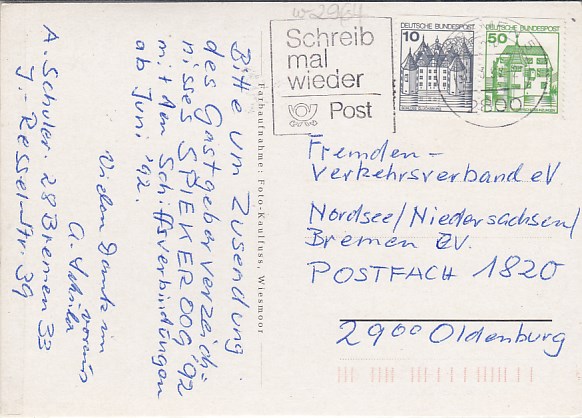 w-2964
Schreib
mal
wieder
Post
DEUTSCHE BUNDESPOST
10
DEUTSCHE BUNDESPOST
50
2800
Bitte um Zusendung
des Gastgeberverzeich-
nisses SPIEKEROOG '92
mit den Schiffsverbindungen
ab Juni '92.
Vielen Dank im
voraus
A. Schüler
A. Schüler. 28 Bremen 33
J.-Ressel-Str. 39
Farbaufnahme: Foto-Kaulfuss, Wiesmoor
Fremden-
Verkehrsverband eV
Nordsee/Niedersachsen/
Bremen eV.
POSTFACH 1820
2900 Oldenburg